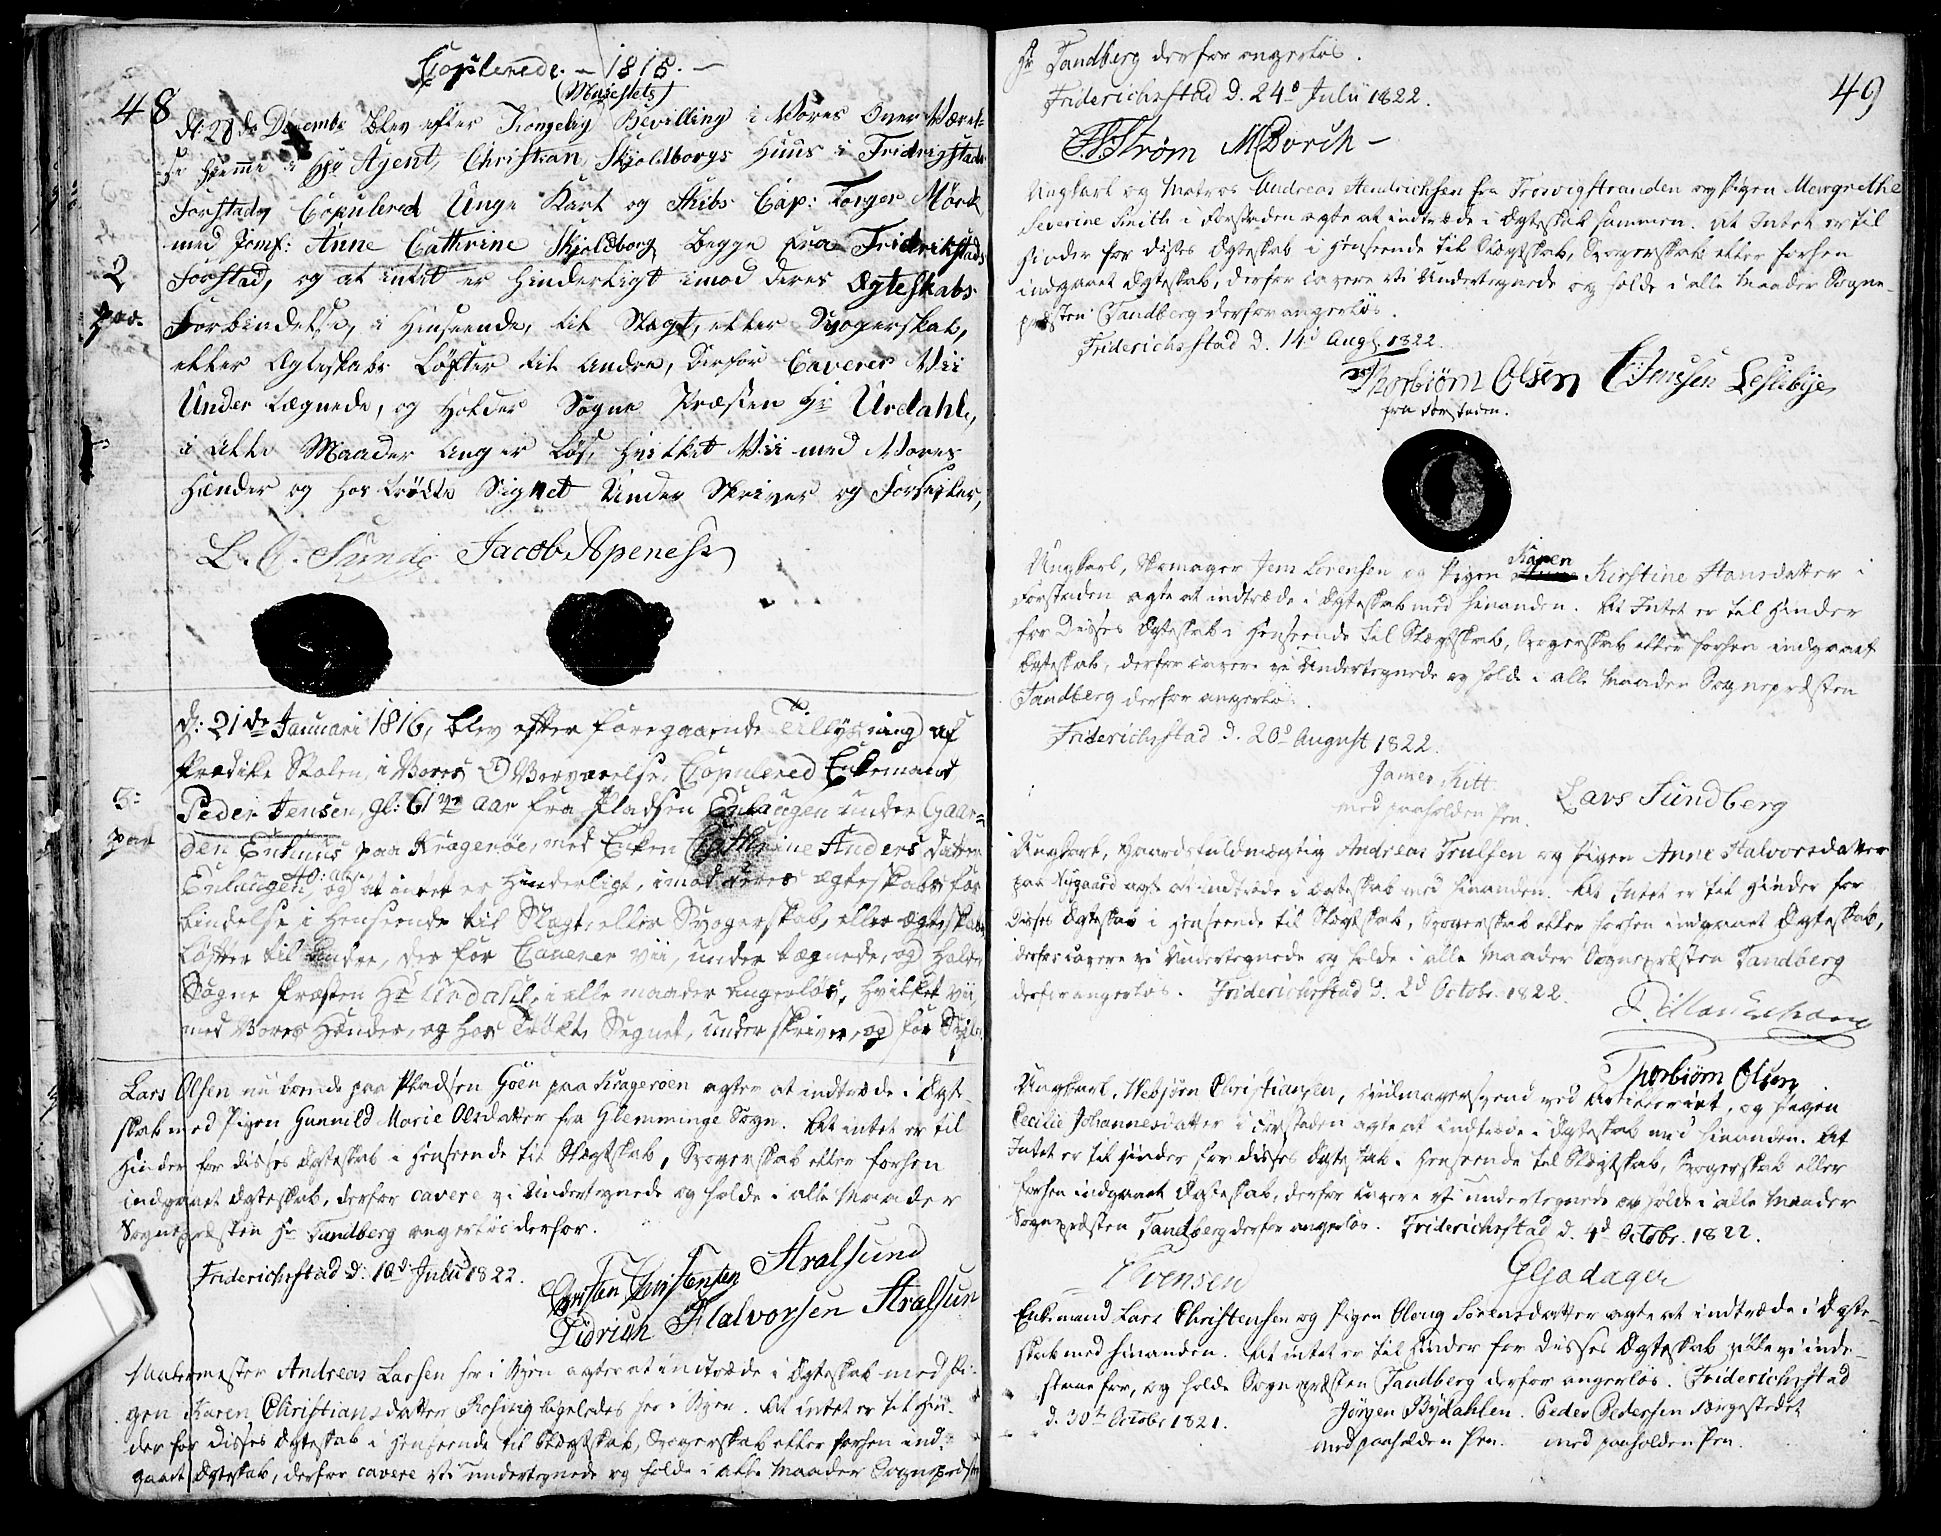 Copulerede. – 1818. –
48
(Majestets)
d: 28de Decembr Blev efter Kongelig Bevilling i Vores Over Værel-
se hiemme i Hr Agent, Christian Skjoldborgs Huus i Fridrigstads
Forstady Copulered Unge Karl og Skibs Cap: Torger Mörk
med Jomf: Anne Cathrine Skjoldborg, Begge fra Fridrikstads
2
Forstad, og at intet er hinderligt imod deres Ægteskabs
par.
Forbindelse, i Henseende, til Slegt, eller Svogerskab,
eller Ægteskabs Løfter til Andre, Derfor Caverer Vii
Under Tegnede, og Holder Sogne Præsten Hr Urdahl,
i Alle Maader Anger Løs, Hvilket Vii med Vores
Hænder og hos trökte Signet Under Skriver og Forseiler,
L. C. Sund Jacob Apeness
d: 21de Januari 1816, blev efter foregaaende Tillysning af
Prædike Stolen, i Vores Overværelse, Copulered Enkemand
3:
Peder Jensen, gl: 61 aar fra Pladsen Enhaugen under Gaar-
par
den Enhuus paa Kragerøe, med Enken Cathrine Anders datter
Enhaugen, og at intet er Hinderligt, imod deres ægteskabs for
bindelse i Henseende til Slegt, eller Svogerskab, eller ægteskabs
Løfter til Andre, der for Caverer vii, under tegnede, og holder
Sogne Præsten Hr Urdahl, i alle maader Angerløs, Hvilket vii,
med Vores Hænder, og hos trökte Segnet, under skriver og for Segler
Lars Olsen nu boende paa Pladsen Göen paa Kragerøen agter at indtræde i Ægte-
skab med Pigen Gunnild Marie Olsdatter fra Glemminge Sogn. At intet er til
Hinder for disses Ægteskab i Henseende til Slægtskab, Svogerskab eller forhen
indgaaet Ægteskab, derfor cavere vi Undertegnede og holde i alle Maader
Sognepræsten Hr Tandberg angerløs derfor.
Friderichstad d. 10d Julii 1822.
Christen Christensen Stralsund
Didrich Halvorsen Stralsun
Malermester Andreas Larsen her i Byen agter at indtræde i Ægteskab med Pi-
gen Karen Christiansdatter Rosing ligeledes her i Byen. At intet er til Hin-
der for disses Ægteskab i Henseende til Slægtskab, Svogerskab eller forhen ind-
gaaet Ægteskab, derfor cavere vi undertegnede og holde i alle Maader Sognepræsten
Hr Tandberg derfor angerløs.
49
Friderichstad d. 24d Julii 1822.
Strøm M Borch –
Ungkarl og Matros Andreas Hendrichsen fra Trosvigstranden og Pigen Margrethe
Severine Smith i Forstaden agte at indtræde i Ægteskab sammen. At Intet er til
Hinder for disses Ægteskab i Henseende til Slægtskab, Svogerskab eller forhen
indgaaet Ægteskab, derfor cavere vi Undertegnede og holde i alle Maader Sogne-
præsten Tandberg derfor angerløs.
Friderichstad d. 14d Augt. 1822.
Thorbiörn Olsen Jensen
fra Forstaden.
Ungkarl, Skomager Jens Sørensen og Pigen Karen Kirstine Hansdatter i
Forstaden agte at indtræde i Ægteskab med hinanden. At Intet er til Hinder
for Disses Ægteskab i Henseende til Slægtskab, Svogerskab eller forhen indgaaet
Ægteskab, derfor cavere vi Undertegnede og holde i alle Maader Sognepræsten
Tandberg derfor angerløs.
Friderichstad d. 20d August 1822.
James Kitt
med paaholden Pen.
Lars Sundberg
Ungkarl, Gaardsfuldmægtig Andreas Trulsen og Pigen Anne Halvorsdatter
paa Nygaard agte at indtræde i Ægteskab med hinanden. At Intet er til Hinder for
Disses Ægteskab i Henseende til Slægtskab, Svogerskab eller forhen indgaaet Ægteskab,
derfor cavere vi Undertegnede og holde i alle Maader Sognepræsten Tandberg
derfor angerløs. Friderichstad d. 2d Octobr. 1822.
Thorbiörn Olsen
Ungkarl, Webjörn Christiansen, Hiulmagersvend ved Artilleriet, og Pigen
Cecilie Johannesdatter i Forstaden agte at indtræde i Ægteskab med hinanden. At
Intet er til Hinder for disses Ægteskab i Henseende til Slægtskab, Svogerskab eller
forhen indgaaet Ægteskab, derfor cavere vi undertegnede og holde i alle Maader
Sognepræsten Tandberg derfor angerløs. Friderichstad d. 4d Octobr. 1822.
Evensen
Enkemand Lars Christensen og Pigen Oloug Sørensdatter agte at indtræde i Ægte-
skab med hinanden. At intet er til Hinder for Disses Ægteskab ville vi inde-
staae for, og holde Sognepræsten Tandberg derfor angerløs. Friderichstad
d. 30te Octobr 1821.
Jörgen Bydahlen. Peder Pedersen Færgestedet
med paaholden Pen. med paaholden Pen.